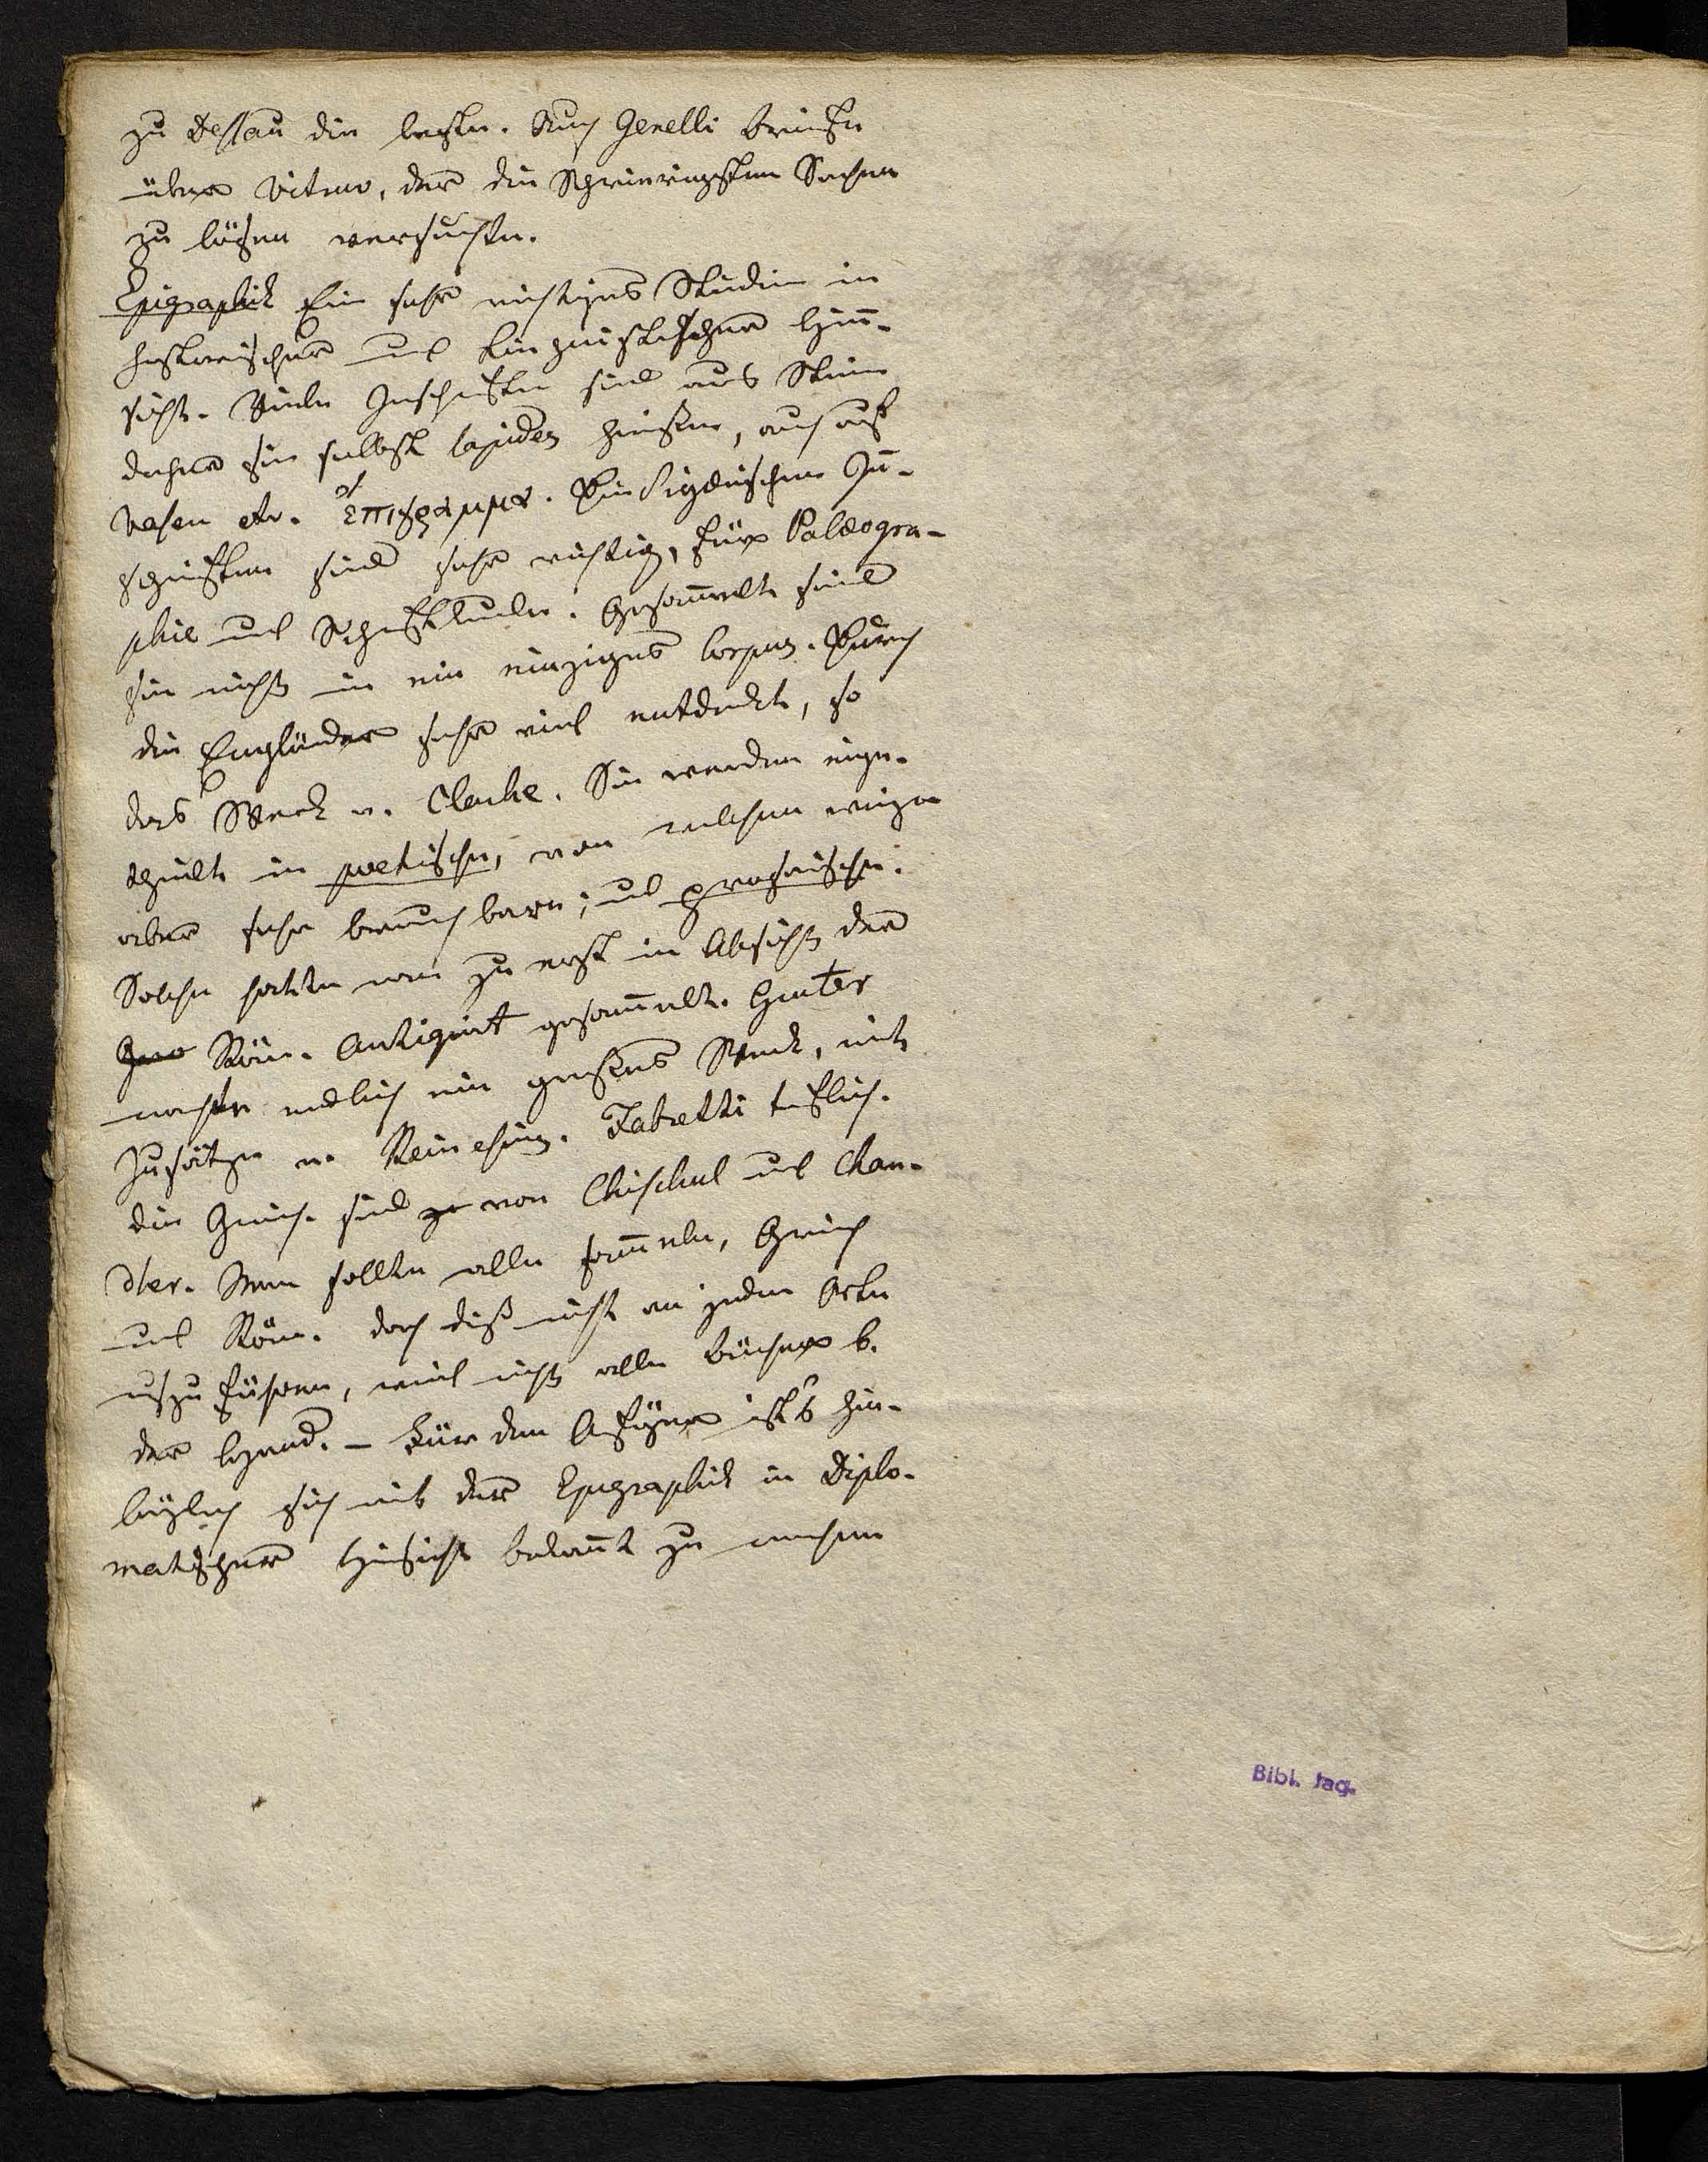 zu Dessau die beste. Auch Genelli Briefe
über Vitruv, der die Schwierigsten Sachen
zu lösen versuchte.
Epigraphik Ein sehr wichtiges Studium in
historischer und linguistischer Hin-
sicht. Viele Inschriften sind aus Stein
daher sie selbst lapides heißen, auch auf
Vasen etc. ἐπιγραμμα. Die Sigeischen In-
schriften sind sehr wichtig, für Palæogra-
phie und Schriftkunde. Gesam̄elt sind
sie nicht in ein einziges Corpus. Durch
die Engländer sehr viel entdeckt, so
das Werk v. Clarke. Sie werden einge-
theilt in poetische, von welchen wenige
aber sehr brauchbare; und prosaische.
Solche hatte man zu erst in Absicht der
Röm. Antiquit gesam̄elt. Gruter
machte endlich ein großes Werk, mit
Zusätzen v. Reinesius. Fabretti trefflich.
die Griech. sind von Chishul und Chan-
dler. Man sollte alle sam̄eln, Griech
und Röm. doch diß nicht an jedem Orte
auszuführen, weil nicht alle Bücher b.
der Hand. - Für den Anfänger ist's hin-
länglich sich mit der Epigraphik in Diplo-
matischer Hinsicht bekan̄t zu machen
Bibl. Jag.